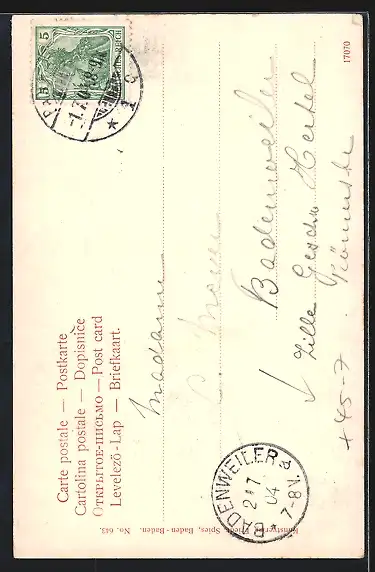 5 5
DEUTSCHES REICH
-1.7.04 8-9
* 1 3
17070
Carte postale — Postkarte
Cartolina postale — Dopisnice
Открытое-письмо — Post card
Levelező-Lap — Briefkaart.
Madame
Badenweiler
+45-7
BADENWEILER a
2 7
04
7-8V
*
Kunstverlag Friedr. Spies, Baden-Baden. No. 643.